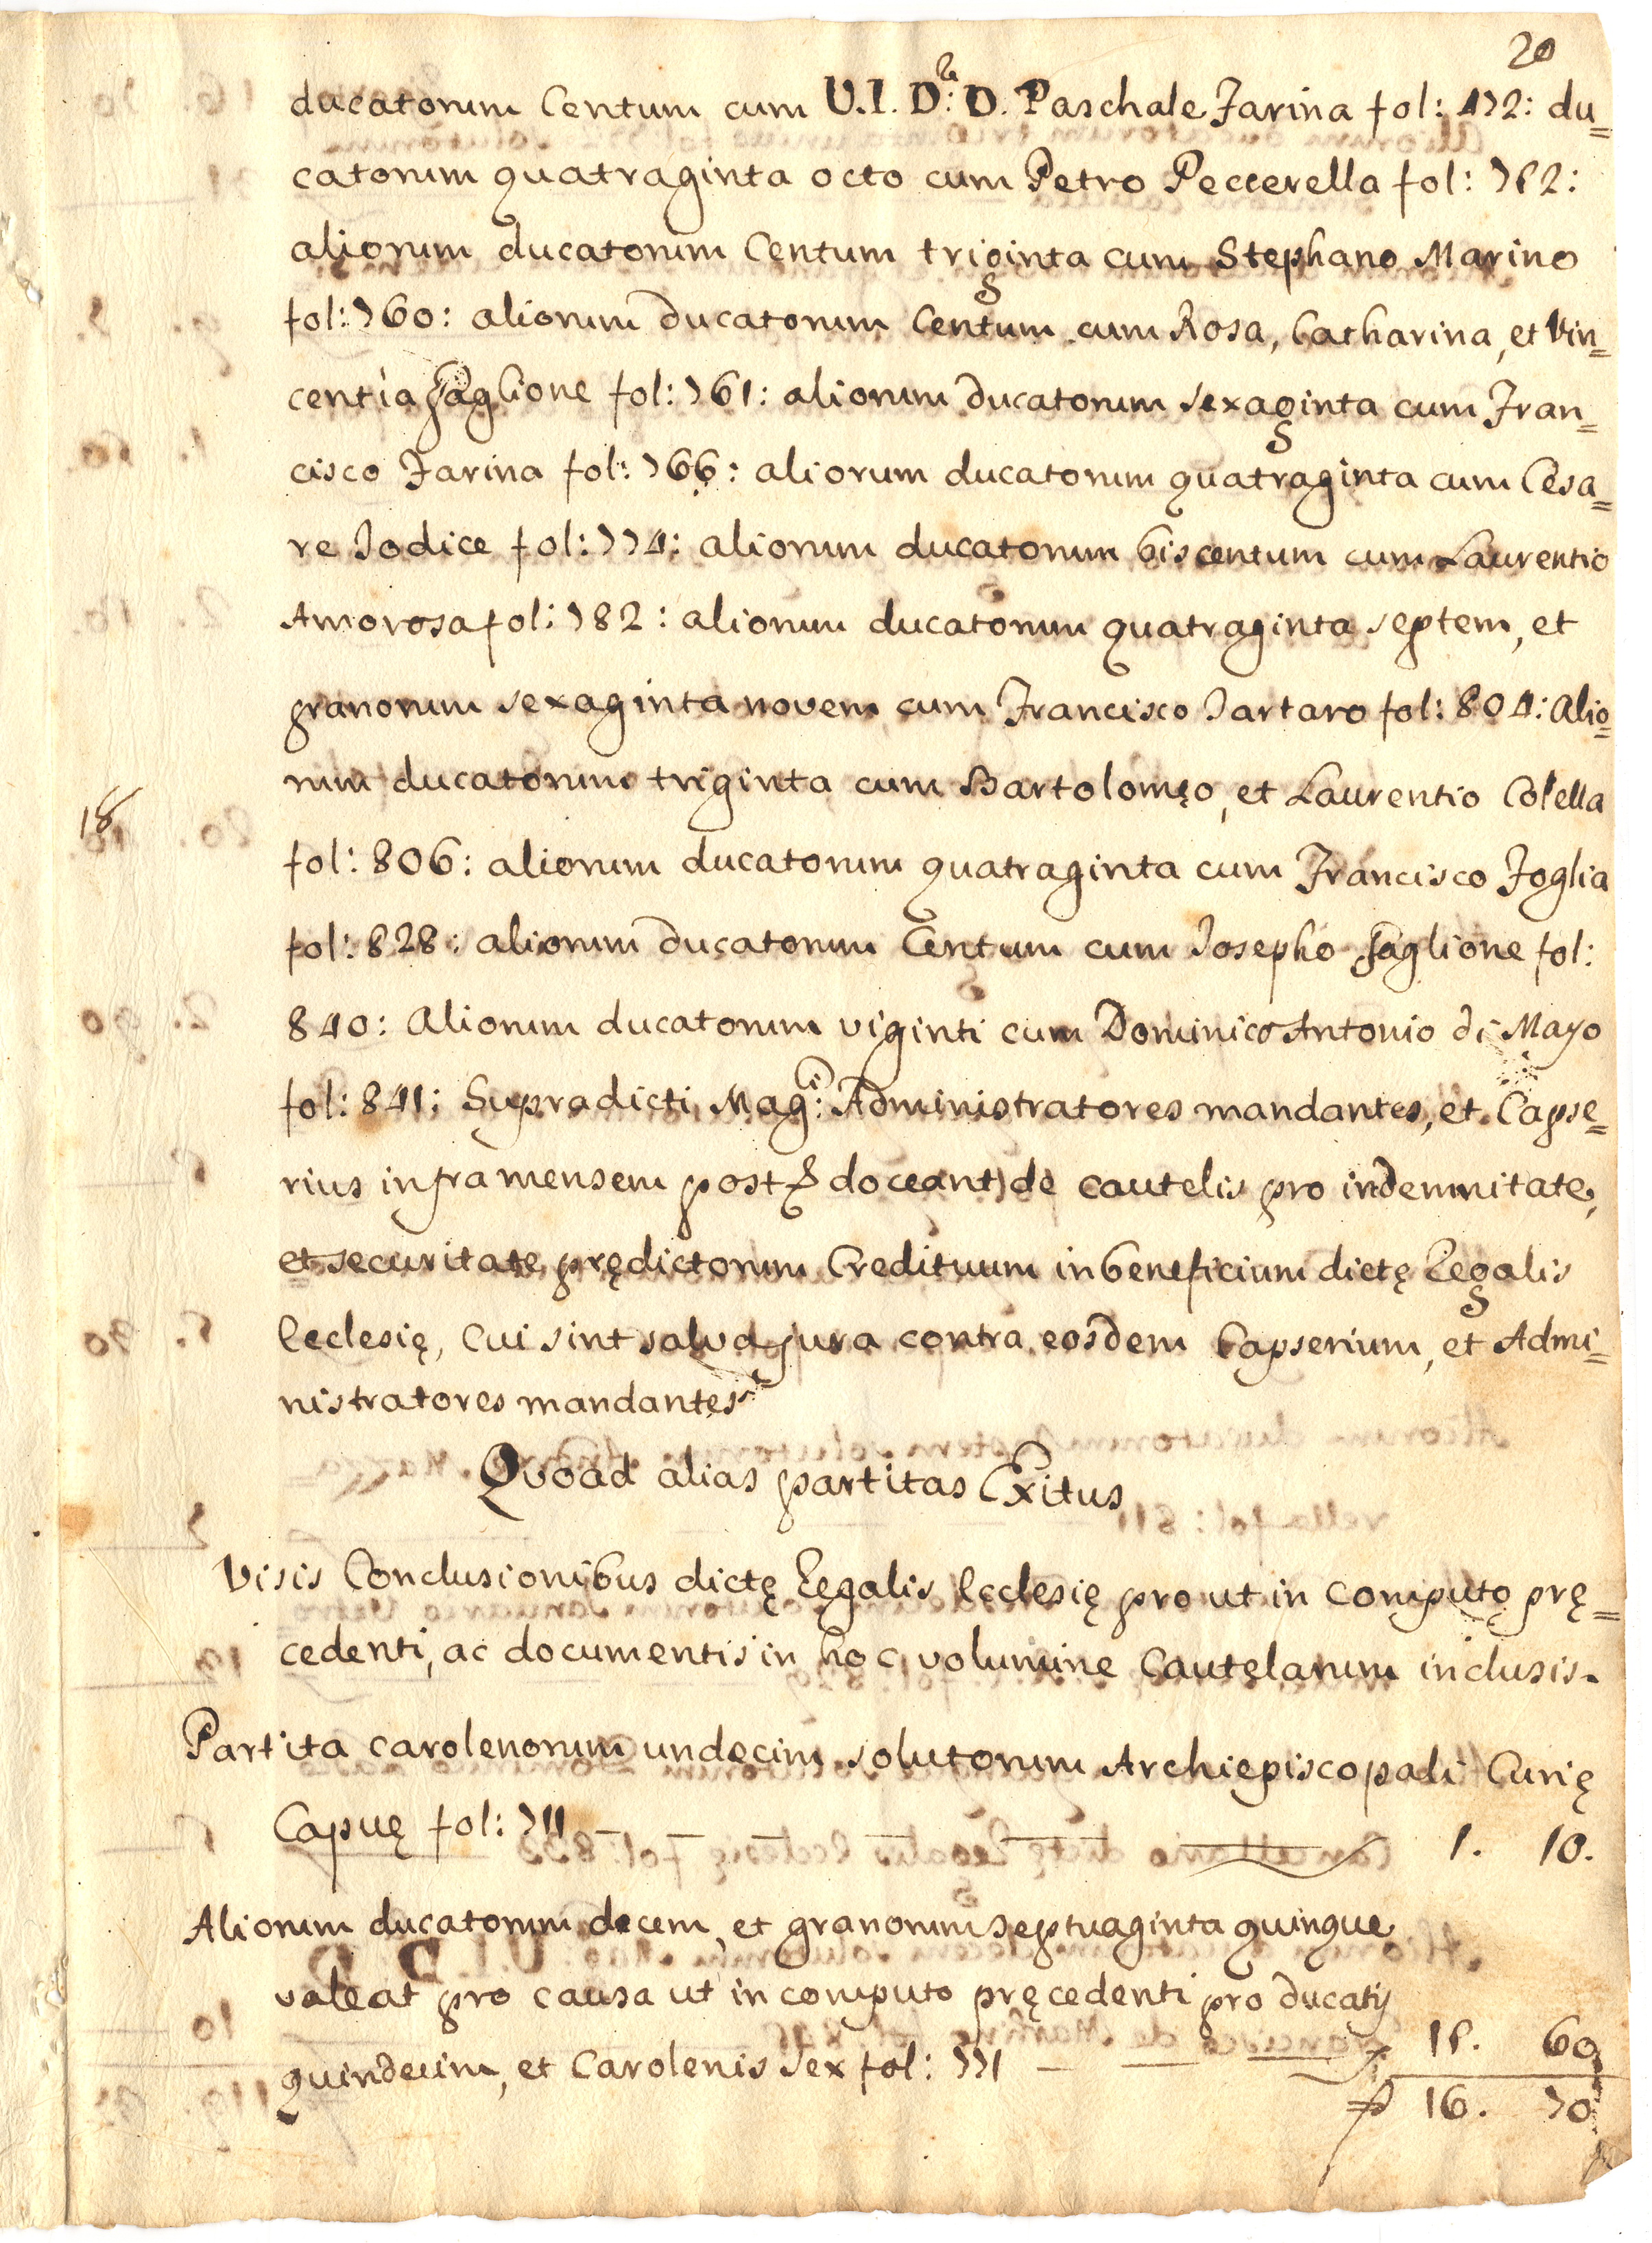 20
ducatorum Centum cum U.I.D.r D. Paschale Farina fol: 472: du=
catorum quatraginta octo cum Petro Peccerella fol: 752:
aliorum ducatorum Centum triginta cum Stephano Marino
fol: 760: aliorum ducatorum Centum cum Rosa, Catharina, et Vin=
centia Paglione fol: 761: aliorum ducatorum sexaginta cum Fran=
cisco Farina fol: 766: aliorum ducatorum quatraginta cum Cesa=
re Jodice fol: 774: aliorum ducatorum biscentum cum Laurentio
Amorosa fol: 782: aliorum ducatorum quatraginta septem, et
granorum sexaginta novem cum Francisco Tartaro fol: 804: alio=
rum ducatorum triginta cum Bartolomęo, et Laurentio Colella
18
fol: 806: aliorum ducatorum quatraginta cum Francisco Foglia
fol: 828: aliorum ducatorum Centum cum Josepho Paglione fol:
840: Aliorum ducatorum viginti cum Dominico Antonio di Mayo
fol: 841; Supradicti Mag:ci Administratores mandantes, et Capse=
rius infra mensem post doceant de cautelis pro indemnitate,
et securitate prędictorum Credituum in beneficium dictę Legalis
Ecclesię, Cui sint salva jura contra eosdem Capserium, et Admi=
nistratores mandantes
Quoad alias partitas Exitus
Visis Conclusionibus dictę Legalis Ecclesię pro ut in computo prę=
cedenti, ac documentis in hoc volumine Cautelarum inclusis.
Partita carolenorum undecim solutorum Archiepiscopali Curię
Capuę fol: 711 1. 10.
Aliorum ducatorum decem, et granorum septuaginta quinque
valeat pro causa ut in computo pręcedenti pro ducatis
quindecim, et Carolenis sex fol: 771 15. 60
16. 70